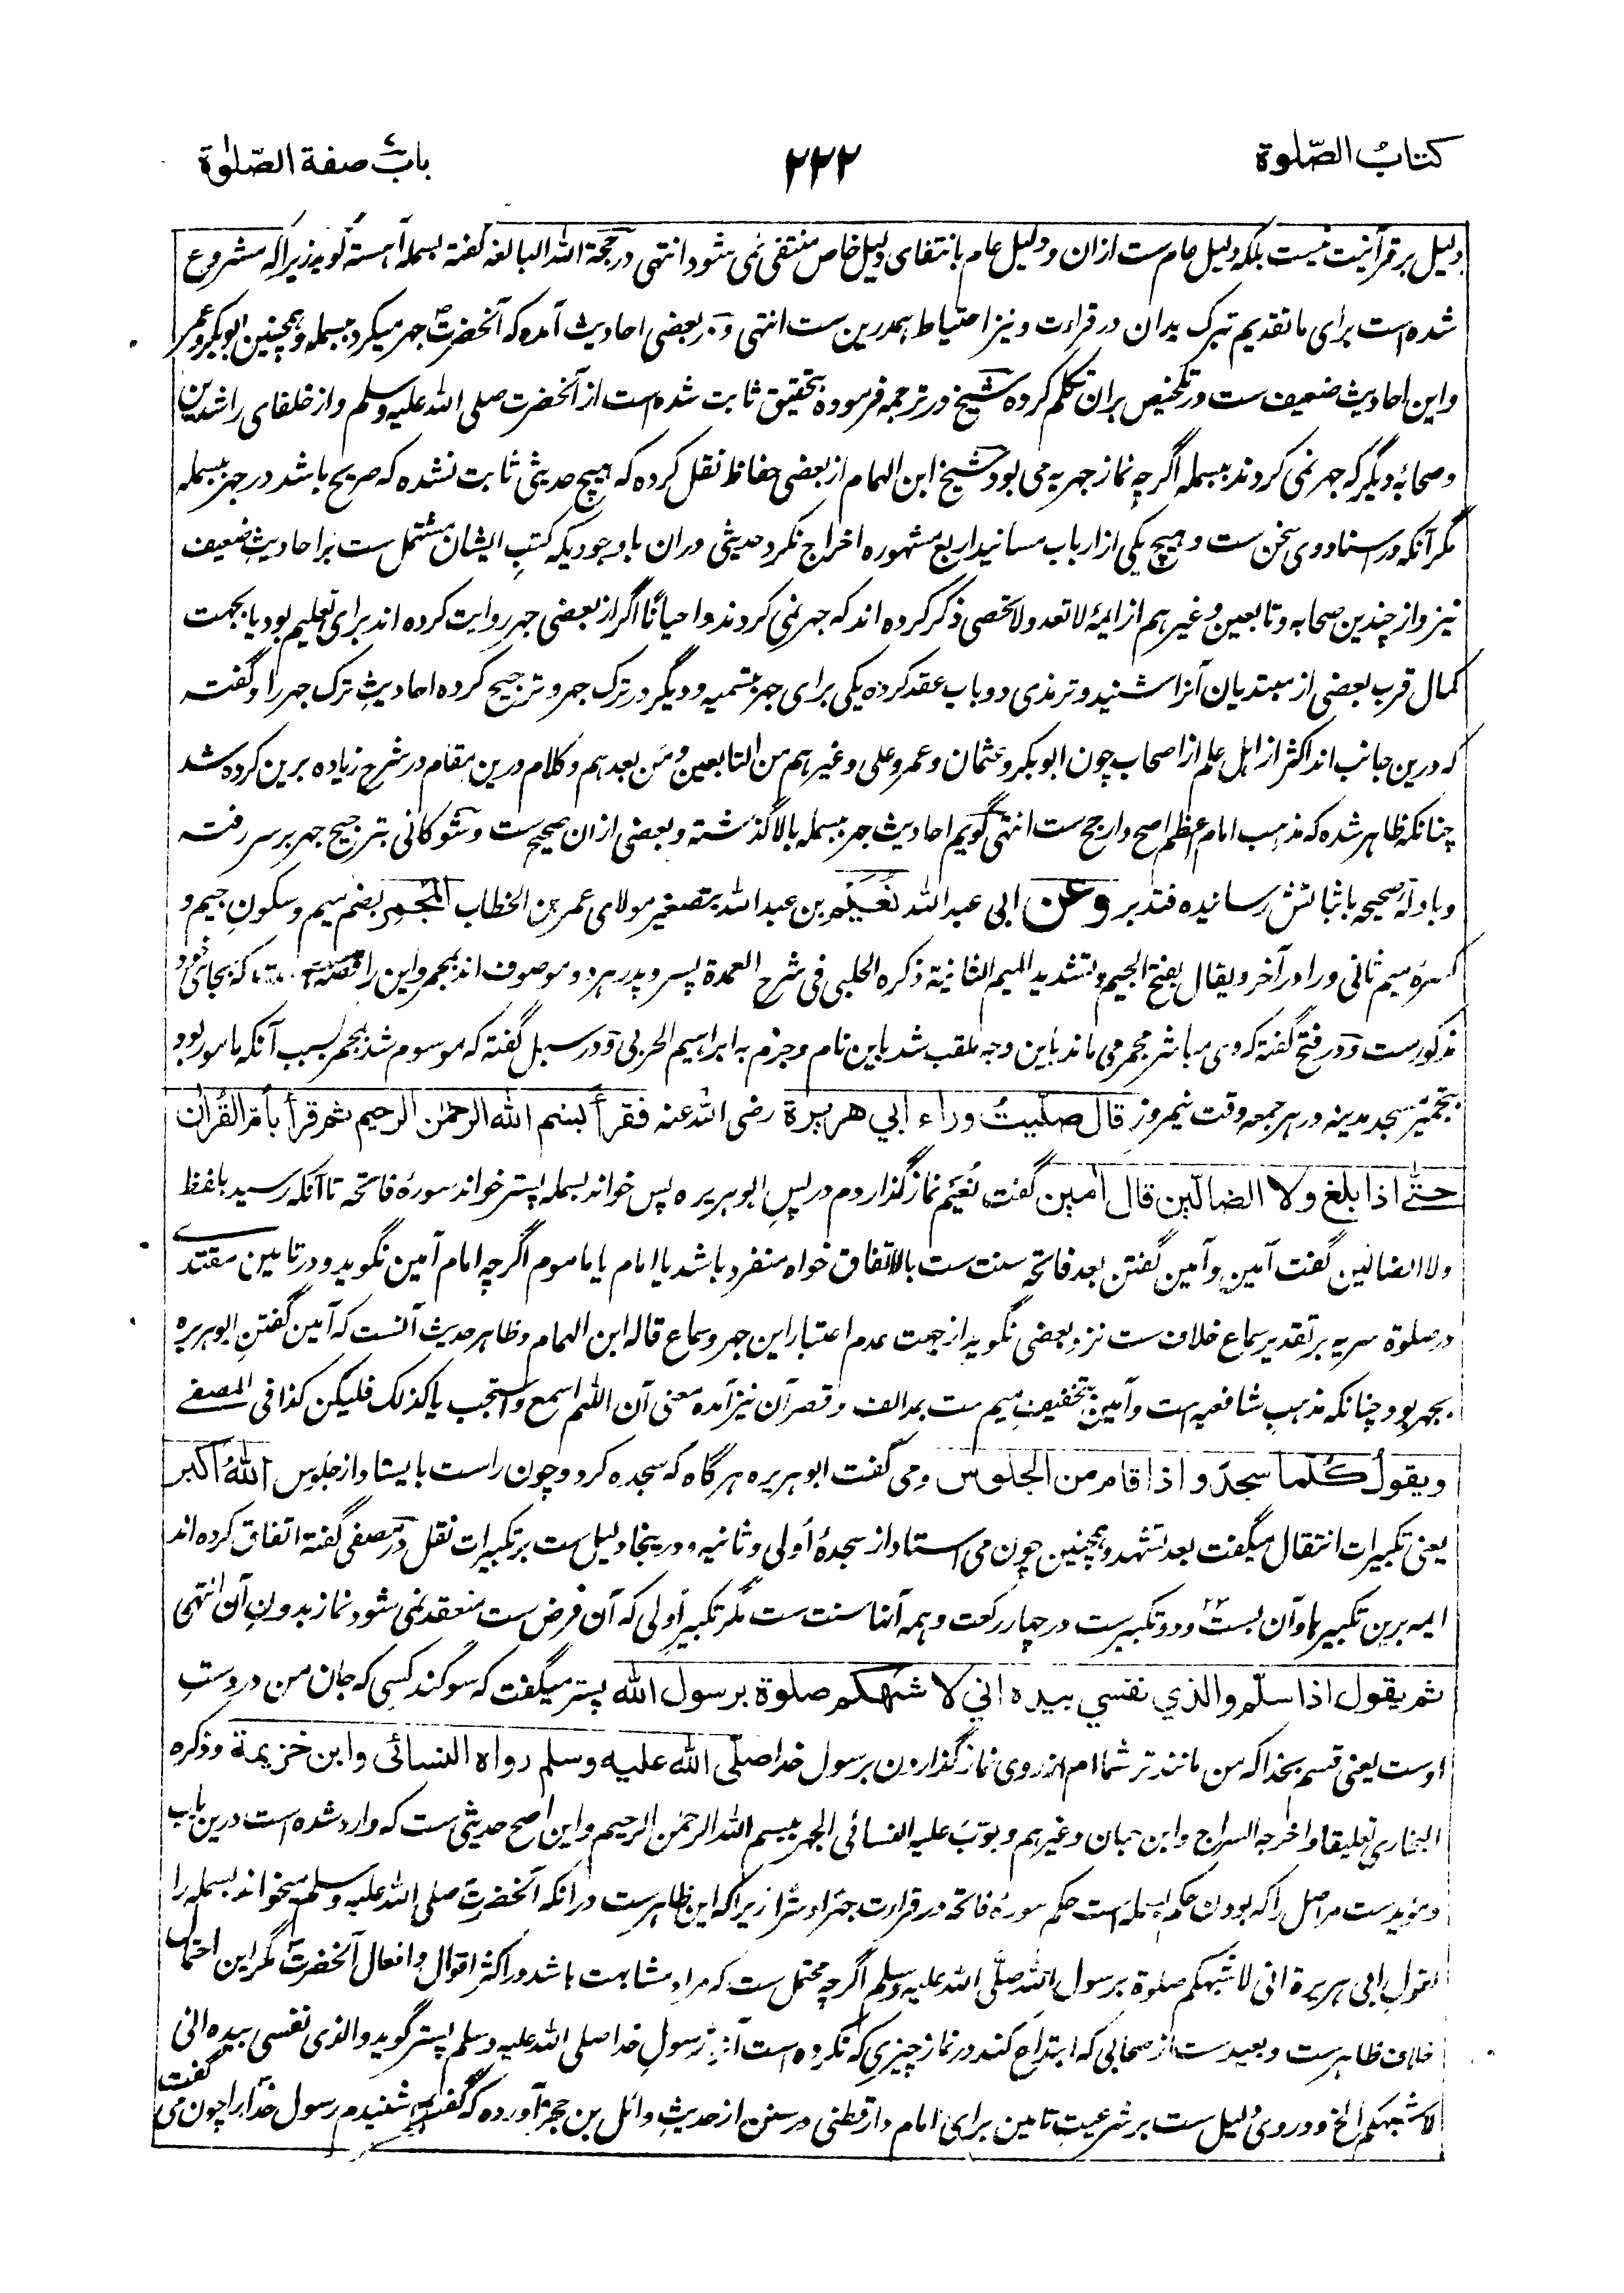 کتابُ الصّلوة
٢٢٢
بابُ صفة الصّلوٰة
دلیل بر قرآنیت نیست بلکه دلیل عام ست ازان و دلیل عام بانتفای دلیل خاص منتفی نمی شود انتهی در حجة الله البالغه گفته بسمله آهسته گوید زیراکه مشروع
شده است برای ما تقدیم تبرک بدان در قراءت و نیز احتیاط همدرین ست انتهی و در بعضی احادیث آمده که آنحضرتؐ جهر میکرد ببسمله و همچنین ابوبکر و عمر
و این احادیث ضعیف ست در تلخیص بران تکلم کرده شیخ در ترجمه فرموده بتحقیق ثابت شده است از آنحضرت صلی الله علیه وسلم و از خلفای راشدین
و صحابهٔ دیگر که جهر نمی کردند ببسمله اگرچه نماز جهریه می بود شیخ ابن الهمام از بعضی حفاظ نقل کرده که هیچ حدیثی ثابت نشده که صریح باشد در جهر ببسمله
مگر آنکه در اسناد وی سخن ست و هیچ یکی از ارباب مسانید اربع مشهوره اخراج نکرد حدیثی دران باوجودیکه کتبِ ایشان مشتمل ست بر احادیثِ ضعیف
نیز و از چندین صحابه و تابعین و غیرهم از ایمهٔ لا تعد ولا تحصی ذکر کرده اند که جهر نمی کردند و احیانًا اگر از بعضی جهر روایت کرده اند برای تعلیم بود یا بجهت
کمال قرب بعضی از مبتدیان آنرا شنید و ترمذی دو باب عقد کرده یکی برای جهر بتسمیه و دیگر در ترک جهر و ترجیح کرده احادیثِ ترک جهر را و گفته
که درین جانب اند اکثر از اهل علم از اصحاب چون ابوبکر و عثمان و عمر و علی و غیرهم من التابعین و من بعدهم و کلام درین مقام در شرح زیاده برین کرده شد
چنانکه ظاهر شده که مذهب امام اعظم اصح و ارجح ست انتهی گویم احادیث جهر ببسمله بالا گذشته و بعضی ازان صحیح ست و شوکانی بترجیح جهر بر سر رفته
و بادلهٔ صحیحه باثباتش رسانیده فتدبر وعن ابی عبد الله نُعَیْم بن عبد الله بتصغیر مولای عمر بن الخطاب المُجْمِر بضم میم و سکونِ جیم و
کسرهٔ میم ثانی و را در آخر و یقال بفتح الجیم و بتشدید المیم الثانیة ذکره الحلبی فی شرح العمدة پسر و پدر هر دو موصوف اند بمجمر و این را که بجای خود
مذکورست و در فتح گفته که وی مباشر مجمر می ماند باین وجه ملقب شد باین نام و جزم به ابراهیم الحربی و در سبل گفته که موسوم شد بمجمر بسبب آنکه مامور بود
بتجمیر مسجد مدینه در هر جمعه وقت نیمروز قال صلّیتُ وراء ابي هریرة رضی الله عنه فقرأ بسم الله الرحمٰن الرحیم ثم قرأ بأم القُرآن
حتّٰے اذا بلغ ولا الضالّین قال آمین گفت نُعَیم نماز گذاردم در پسِ ابوهریره پس خواند بسمله پستر خواند سورهٔ فاتحه تا آنکه رسید بلفظ
ولا الضالین گفت آمین و آمین گفتن بعد فاتحه سنت ست بالاتفاق خواه منفرد باشد یا امام یا ماموم اگرچه امام آمین نگوید و در تامین مقتدے
در صلوة سریه بر تقدیر سماع خلاف ست نزد بعضی نگوید از جهت عدم اعتبار این جهر و سماع قاله ابن الهمام و ظاهر حدیث آنست که آمین گفتنِ ابوهریره
بجهر بود چنانکه مذهبِ شافعیه است و آمین بتخفیفِ میم ست بمد الف و قصر آن نیز آمده معنی آن اللهم اسمع واستجب یا کذلک فلیکن کذا فی المصفے
ویقولُ کُلّما سجدَ واذا قام من الجلوس ومی گفت ابوهریره هرگاه که سجده کرد و چون راست بایستاد از جلوس اللهُ اکبر
یعنی تکبیرات انتقال میگفت بعد تشهد و همچنین چون می استاد از سجدهٔ اُولی و ثانیه و درینجا دلیل ست بر تکبیرات نقل در مصفی گفته اتفاق کرده اند
ایمه برین تکبیرها و آن بست و دو تکبیرست در چهار رکعت و همه آنها سنت ست مگر تکبیر اُولی که آن فرض ست منعقد نمی شود نماز بدونِ آن انتهی
ثم یقول اذا سلّم والذي نفسي بیده اني لاشبهکم صلوة برسول الله پستر میگفت که سوگند کسی که جان من در دستِ
اوست یعنی قسم بخدا که من مانندتر شماام از روی نماز گذاردن برسول خدا صلّی الله علیه وسلم رواه النسائی وابن خزیمة وذکره
البخاری تعلیقا و اخرجه السراج وابن حبان و غیرهم و بوّبَ علیه النسائی الجهر ببسم الله الرحمٰن الرحیم و این اصح حدیثی ست که وارد شده است درین باب
و مؤیدست مر اصل را که بودن حکم بسمله است حکم سورهٔ فاتحه در قراءت جهرًا و سرًا زیراکه این ظاهرست درانکه آنحضرت صلی الله علیه وسلم میخواند بسمله را
لقولِ ابی هریرة انی لاشبهکم صلوة برسول الله صلّی الله علیه وسلم اگرچه محتمل ست که مراد مشابهت باشد در اکثر اقوال و افعال آنحضرتؐ مگر این احتمال
خلاف ظاهرست و بعیدست از صحابی که ابتداع کند در نماز چیزی که نکرده است آنرا رسولِ خدا صلی الله علیه وسلم پستر گوید والذی نفسی بیده انی
لاشبهکم الخ و در وی دلیل ست بر شرعیتِ تامین برای امام دارقطنی در سنن از حدیثِ وائل بن حجر آورده که گفت شنیدم رسول خدا را چون می گفت